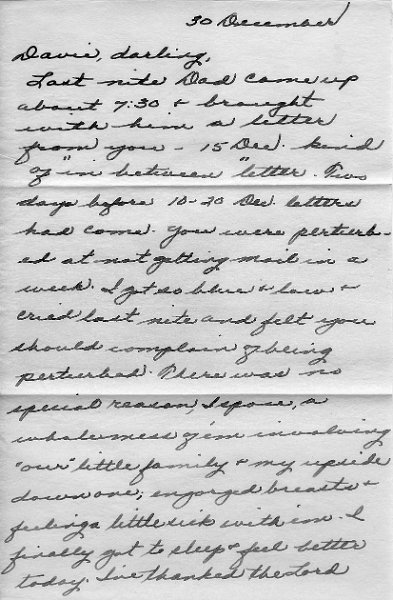 30 December
Davie, darling,
Last nite Dad came up
about 7:30 + brought
with him a letter
from you - 15 Dec. kind
of "in between" letter. Two
days before 10-20 Dec. letters
had come. You were perturb-
ed at not getting mail in a
week. I got so blue + low +
cried last nite and felt you
should complain of being
perturbed. There was no
special reason, I spose, a
whole mess of em involving
"our" little family + my upside
down one, engorged breasts +
feeling a little sick with em. I
finally got to sleep + feel better
today. I've thanked the Lord